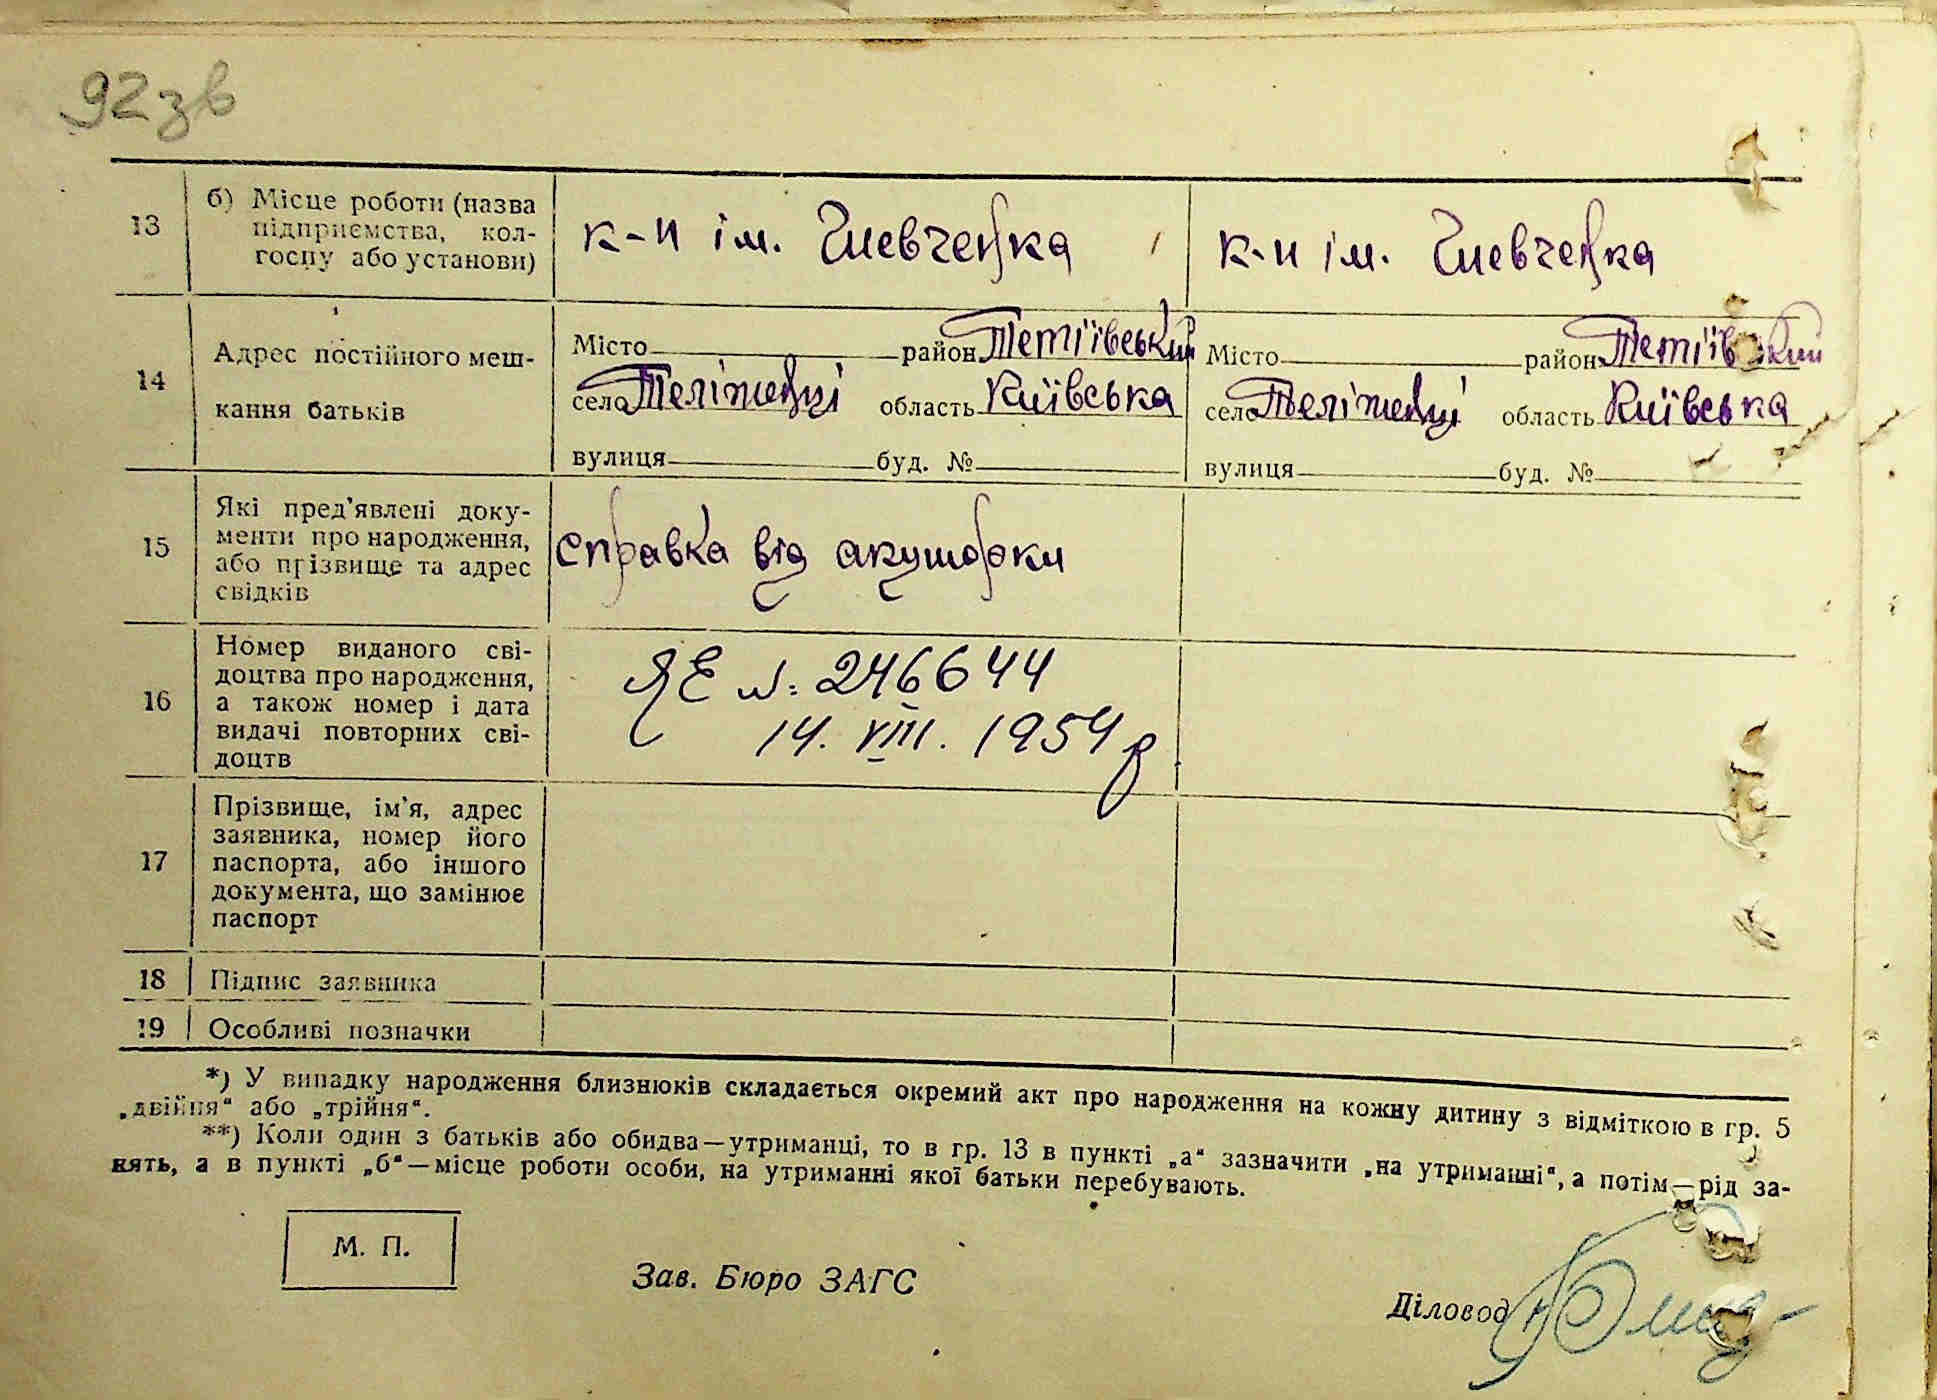 92 зв
13 б) Місце роботи (назва
підприємства, кол-
госпу або установи)
к-п ім. Шевченка
к-п ім. Шевченка
14 Адрес постійного меш-
кання батьків
Місто район Тетіївський
село Теліженці область Київська
вулиця буд. №
Місто район Тетіївський
село Теліженці область Київська
вулиця буд. №
15 Які пред'явлені доку-
менти про народження,
або прізвище та адрес
свідків
справка від акушорки
16 Номер виданого сві-
доцтва про народження,
а також номер і дата
видачі повторних сві-
доцтв
ЯЕ №: 246644
14. VIII. 1954 р
17 Прізвище, ім'я, адрес
заявника, номер його
паспорта, або іншого
документа, що замінює
паспорт
18 Підпис заявника
19 Особливі позначки
*) У випадку народження близнюків складається окремий акт про народження на кожну дитину з відміткою в гр. 5
„двійня“ або „трійня“.
**) Коли один з батьків або обидва—утриманці, то в гр. 13 в пункті „а“ зазначити „на утриманні“, а потім—рід за-
нять, а в пункті „б“—місце роботи особи, на утриманні якої батьки перебувають.
М. П.
Зав. Бюро ЗАГС
Діловод